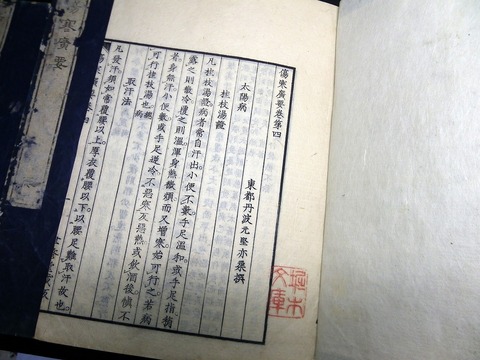 傷寒廣要卷第四
東都丹波元堅亦柔撰
太陽病
桂枝湯證
凡桂枝湯證病者常自汗出小便不數手足溫和或手足指稍
露之則微冷覆之則溫渾身熱微煩而又憎寒始可行之若病
者身無汗小便數或手足逆冷不惡寒反惡熱或飲酒後慎不
可行桂枝湯也總病
取汗法
凡發汗須如常覆腰以上厚衣覆腰以下以腰足難取汗故也
文庫
寒廣要